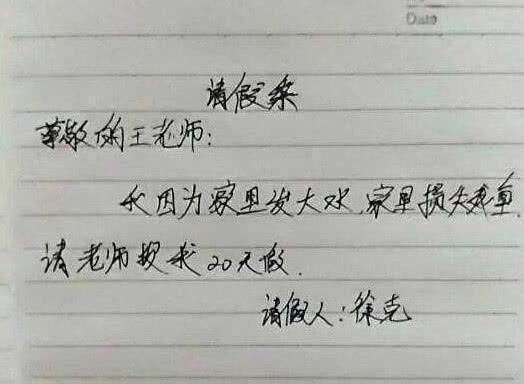 Date
请假条
尊敬的王老师：
我因为家里发大水，家里损失惨重，
请老师批我20天假．
请假人：徐克